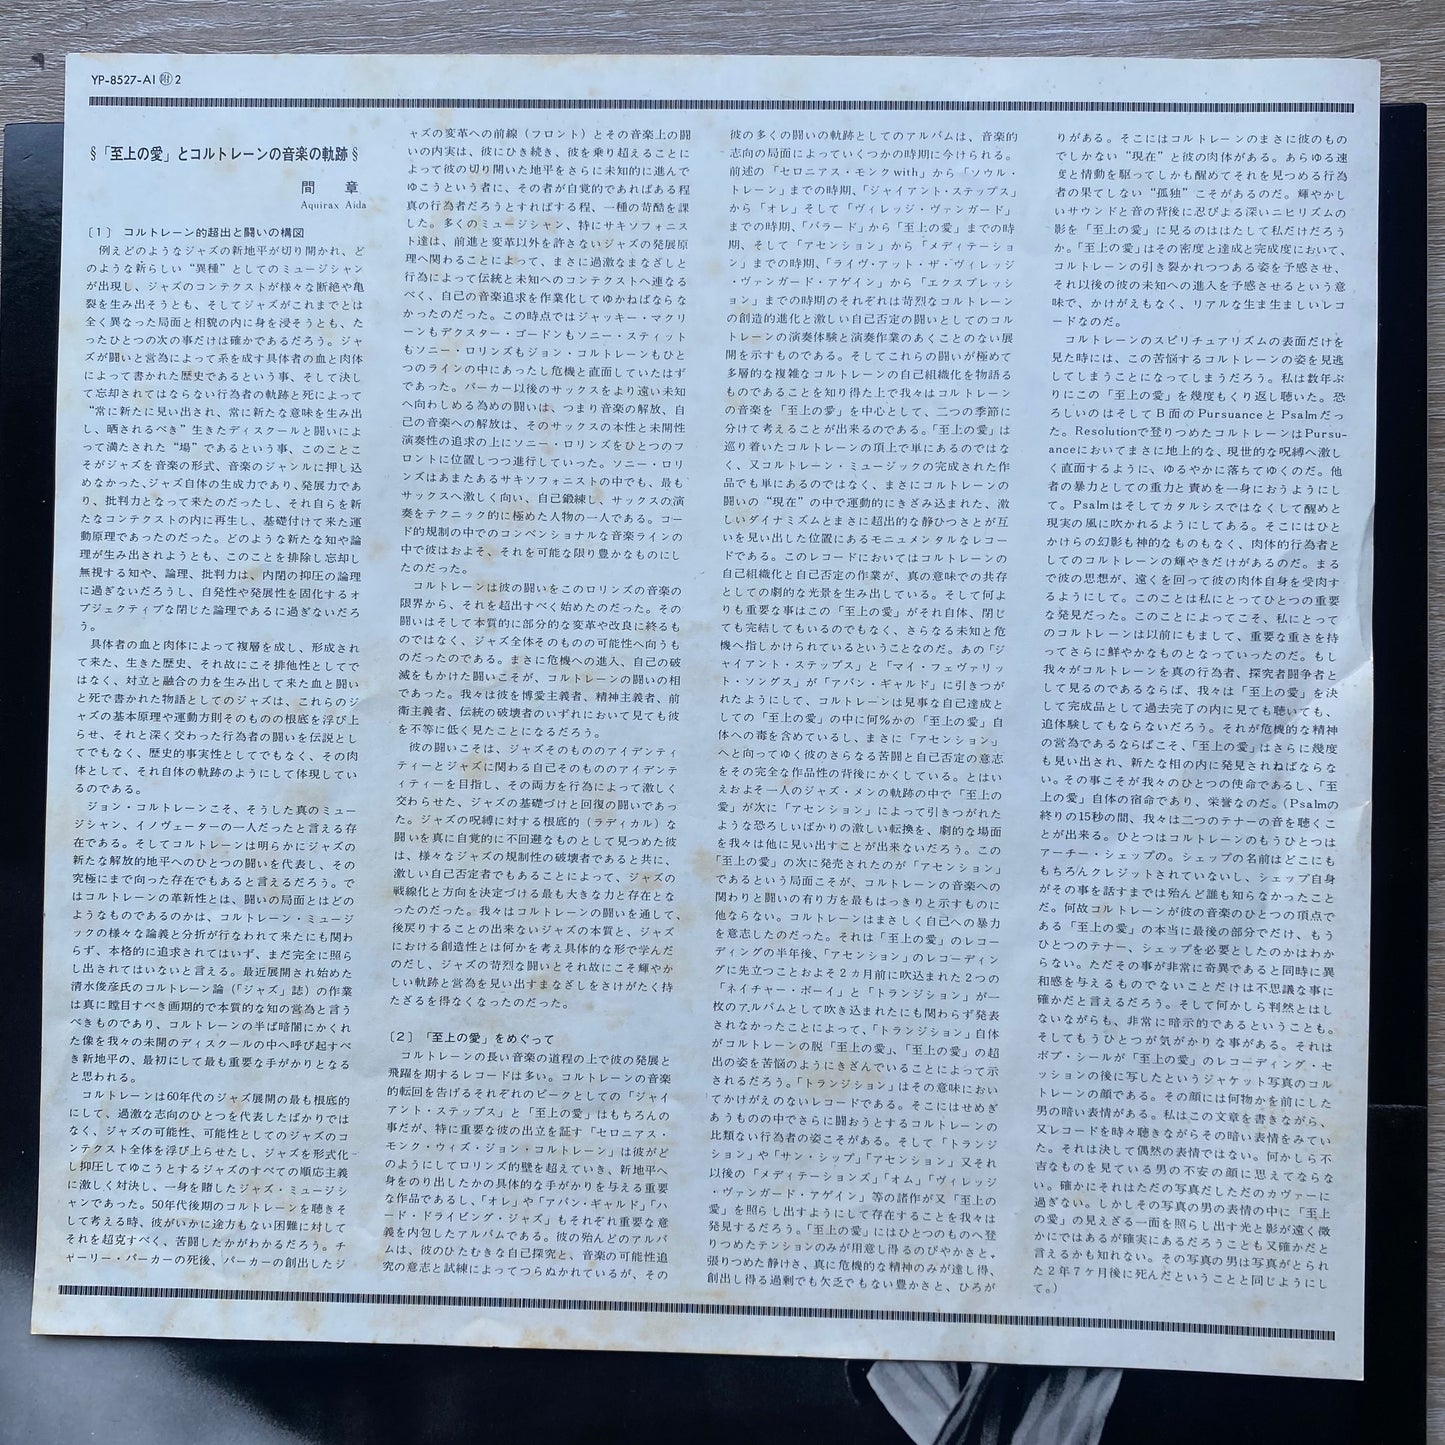 YP-8527-AI ㊞ 2
§「至上の愛」とコルトレーンの音楽の軌跡§
間 章
Aquirax Aida
〔1〕 コルトレーン的超出と闘いの構図
例えどのようなジャズの新地平が切り開かれ、ど
のような新らしい“異種”としてのミュージシャン
が出現し、ジャズのコンテクストが様々な断絶や亀
裂を生み出そうとも、そしてジャズがこれまでとは
全く異なった局面と相貌の内に身を浸そうとも、た
ったひとつの次の事だけは確かであるだろう。ジャ
ズが闘いと営為によって系を成す具体者の血と肉体
によって書かれた歴史であるという事、そして決し
て忘却されてはならない行為者の軌跡と死によって
“常に新たに見い出され、常に新たな意味を生み出
し、晒されるべき”生きたディスクールと闘いによ
って満たされた“場”であるという事、このことこ
そがジャズを音楽の形式、音楽のジャンルに押し込
めなかった、ジャズ自体の生成力であり、発展力であ
り、批判力となって来たのだったし、それ自らを新
たなコンテクストの内に再生し、基礎付けて来た運
動原理であったのだった。どのような新たな知や論
理が生み出されようとも、このことを排除し忘却し
無視する知や、論理、批判力は、内閉の抑圧の論理
に過ぎないだろうし、自発性や発展性を固化するオ
ブジェクティブな閉じた論理であるに過ぎないだろ
う。
具体者の血と肉体によって複層を成し、形成され
て来た、生きた歴史、それ故にこそ排他性としてで
はなく、対立と融合の力を生み出して来た血と闘い
と死で書かれた物語としてのジャズは、これらのジ
ャズの基本原理や運動方則そのものの根底を浮び上
らせ、それと深く交わった行為者の闘いを伝説とし
てでもなく、歴史的事実性としてでもなく、その肉
体として、それ自体の軌跡のようにして体現してい
るのである。
ジョン・コルトレーンこそ、そうした真のミュー
ジシャン、イノヴェーターの一人だったと言える存
在である。そしてコルトレーンは明らかにジャズの
新たな解放的地平へのひとつの闘いを代表し、その
究極にまで向った存在でもあると言えるだろう。で
はコルトレーンの革新性とは、闘いの局面とはどの
ようなものであるのかは、コルトレーン・ミュージ
ックの様々な論義と分折が行なわれて来たにも関わ
らず、本格的に追求されてはいず、まだ完全に照ら
し出されてはいないと言える。最近展開され始めた
清水俊彦氏のコルトレーン論（「ジャズ」誌）の作業
は真に瞠目すべき画期的で本質的な知の営為と言う
べきものであり、コルトレーンの半ば暗闇にかくれ
た像を我々の未開のディスクールの中へ呼び起すべ
き新地平の、最初にして最も重要な手がかりとなる
と思われる。
コルトレーンは60年代のジャズ展開の最も根底的
にして、過激な志向のひとつを代表したばかりでは
なく、ジャズの可能性、可能性としてのジャズのコ
ンテクスト全体を浮び上らせたし、ジャズを形式化
し抑圧してゆこうとするジャズのすべての順応主義
に激しく対決し、一身を賭したジャズ・ミュージシ
ャンであった。50年代後期のコルトレーンを聴きそ
して考える時、彼がいかに途方もない困難に対して
それを超克すべく、苦闘したかがわかるだろう。チ
ャーリー・パーカーの死後、パーカーの創出したジ
ャズの変革への前線（フロント）とその音楽上の闘
いの内実は、彼にひき続き、彼を乗り超えることに
よって彼の切り開いた地平をさらに未知的に進んで
ゆこうという者に、その者が自覚的であればある程
真の行為者だろうとすればする程、一種の苛酷を課
した。多くのミュージシャン、特にサキソフォニス
ト達は、前進と変革以外を許さないジャズの発展原
理へ関わることによって、まさに過激なまなざしと
行為によって伝統と未知へのコンテクストへ連なる
べく、自己の音楽追求を作業化してゆかねばならな
かったのだった。この時点ではジャッキー・マクリ
ーンもデクスター・ゴードンもソニー・スティット
もソニー・ロリンズもジョン・コルトレーンもひと
つのラインの中にあったし危機と直面していたはず
であった。パーカー以後のサックスをより遠い未知
へ向わしめる為めの闘いは、つまり音楽の解放、自
己の音楽への解放は、そのサックスの本性と未開性
演奏性の追求の上にソニー・ロリンズをひとつのフ
ロントに位置しつつ進行していった。ソニー・ロリ
ンズはあまたあるサキソフォニストの中でも、最も
サックスへ激しく向い、自己鍛練し、サックスの演
奏をテクニック的に極めた人物の一人である。コー
ド的規制の中でのコンベンショナルな音楽ラインの
中で彼はおよそ、それを可能な限り豊かなものにし
たのだった。
コルトレーンは彼の闘いをこのロリンズの音楽の
限界から、それを超出すべく始めたのだった。その
闘いはそして本質的に部分的な変革や改良に終るも
のではなく、ジャズ全体そのものの可能性へ向うも
のだったのである。まさに危機への進入、自己の破
滅をもかけた闘いこそが、コルトレーンの闘いの相
であった。我々は彼を博愛主義者、精神主義者、前
衛主義者、伝統の破壊者のいずれにおいて見ても彼
を不等に低く見たことになるだろう。
彼の闘いこそは、ジャズそのもののアイデンティ
ティーとジャズに関わる自己そのもののアイデンテ
ィティーを目指し、その両方を行為によって激しく
交わらせた、ジャズの基礎づけと回復の闘いであっ
た。ジャズの呪縛に対する根底的（ラディカル）な
闘いを真に自覚的に不回避なものとして見つめた彼
は、様々なジャズの規制性の破壊者であると共に、
激しい自己否定者でもあることによって、ジャズの
戦線化と方向を決定づける最も大きな力と存在とな
ったのだった。我々はコルトレーンの闘いを通して、
後戻りすることの出来ないジャズの本質と、ジャズ
における創造性とは何かを考え具体的な形で学んだ
のだし、ジャズの苛烈な闘いとそれ故にこそ輝やか
しい軌跡と営為を見い出すまなざしをさけがたく持
たざるを得なくなったのだった。
〔2〕「至上の愛」をめぐって
コルトレーンの長い音楽の道程の上で彼の発展と
飛躍を期するレコードは多い。コルトレーンの音楽
的転回を告げるそれぞれのピークとしての「ジャイ
アント・ステップス」と「至上の愛」はもちろんの
事だが、特に重要な彼の出立を証す「セロニアス・
モンク・ウィズ・ジョン・コルトレーン」は彼がど
のようにしてロリンズ的壁を超えていき、新地平へ
身をのり出したかの具体的な手がかりを与える重要
な作品であるし、「オレ」や「アバン・ギャルド」「ハ
ード・ドライビング・ジャズ」もそれぞれ重要な意
義を内包したアルバムである。彼の殆んどのアルバ
ムは、彼のひたむきな自己探究と、音楽の可能性追
究の意志と試練によってつらぬかれているが、その
彼の多くの闘いの軌跡としてのアルバムは、音楽的
志向の局面によっていくつかの時期に今けられる。
前述の「セロニアス・モンクwith」から「ソウル・
トレーン」までの時期、「ジャイアント・ステップス」
から「オレ」そして「ヴィレッジ・ヴァンガード」
までの時期、「バラード」から「至上の愛」までの時
期、そして「アセンション」から「メディテーショ
ン」までの時期、「ライヴ・アット・ザ・ヴィレッジ
・ヴァンガード・アゲイン」から「エクスプレッシ
ョン」までの時期のそれぞれは苛烈なコルトレーン
の創造的進化と激しい自己否定の闘いとしてのコル
トレーンの演奏体験と演奏作業のあくことのない展
開を示すものである。そしてこれらの闘いが極めて
多層的な複雑なコルトレーンの自己組織化を物語る
ものであることを知り得た上で我々はコルトレーン
の音楽を「至上の愛」を中心として、二つの季節に
分けて考えることが出来るのである。「至上の愛」は
巡り着いたコルトレーンの頂上で単にあるのではな
く、又コルトレーン・ミュージックの完成された作
品でも単にあるのではなく、まさにコルトレーンの
闘いの“現在”の中で運動的にきざみ込まれた、激
しいダイナミズムとまさに超出的な静ひつさとが互
いを見い出した位置にあるモニュメンタルなレコー
ドである。このレコードにおいてはコルトレーンの
自己組織化と自己否定の作業が、真の意味での共存
としての劇的な光景を生み出している。そして何よ
りも重要な事はこの「至上の愛」がそれ自体、閉じ
ても完結してもいるのでもなく、さらなる未知と危
機へ指しかけられているということなのだ。あの「ジ
ャイアント・ステップス」と「マイ・フェヴァリッ
ト・ソングス」が「アバン・ギャルド」に引きつが
れたようにして、コルトレーンは見事な自己達成と
しての「至上の愛」の中に何%かの「至上の愛」自
体への毒を含めているし、まさに「アセンション」
へと向ってゆく彼のさらなる苦闘と自己否定の意志
をその完全な作品性の背後にかくしている。とはい
えおよそ一人のジャズ・メンの軌跡の中で「至上の
愛」が次に「アセンション」によって引きつがれた
ような恐ろしいばかりの激しい転換を、劇的な場面
を我々は他に見い出すことが出来ないだろう。この
「至上の愛」の次に発売されたのが「アセンション」
であるという局面こそが、コルトレーンの音楽への
関わりと闘いの有り方を最もはっきりと示すものに
他ならない。コルトレーンはまさしく自己への暴力
を意志したのだった。それは「至上の愛」のレコー
ディングの半年後、「アセンション」のレコーディン
グに先立つことおよそ2カ月前に吹込まれた2つの
「ネイチャー・ボーイ」と「トランジション」が一
枚のアルバムとして吹き込まれたにも関わらず発表
されなかったことによって、「トランジション」自体
がコルトレーンの脱「至上の愛」、「至上の愛」の超
出の姿を苦悩のようにきざんでいることによって示
されるだろう。「トランジション」はその意味におい
てかけがえのないレコードである。そこにはせめぎ
あうものの中でさらに闘おうとするコルトレーンの
比類ない行為者の姿こそがある。そして「トランジ
ション」や「サン・シップ」「アセンション」又それ
以後の「メディテーションズ」「オム」「ヴィレッジ
・ヴァンガード・アゲイン」等の諸作が又「至上の
愛」を照らし出すようにして存在することを我々は
発見するだろう。「至上の愛」にはひとつのものへ登
りつめたテンションのみが用意し得るのびやかさと、
張りつめた静けさ、真に危機的な精神のみが達し得、
創出し得る過剰でも欠乏でもない豊かさと、ひろが
りがある。そこにはコルトレーンのまさに彼のもの
でしかない“現在”と彼の肉体がある。あらゆる速
度と情動を駆ってしかも醒めてそれを見つめる行為
者の果てしない“孤独”こそがあるのだ。輝やかし
いサウンドと音の背後に忍びよる深いニヒリズムの
影を「至上の愛」に見るのははたして私だけだろう
か。「至上の愛」はその密度と達成と完成度において、
コルトレーンの引き裂かれつつある姿を予感させ、
それ以後の彼の未知への進入を予感させるという意
味で、かけがえもなく、リアルな生ま生ましいレコ
ードなのだ。
コルトレーンのスピリチュアリズムの表面だけを
見た時には、この苦悩するコルトレーンの姿を見逃
してしまうことになってしまうだろう。私は数年ぶ
りにこの「至上の愛」を幾度もくり返し聴いた。恐
ろしいのはそしてB面のPursuanceとPsalmだっ
た。Resolutionで登りつめたコルトレーンはPursu-
anceにおいてまさに地上的な、現世的な呪縛へ激し
く直面するように、ゆるやかに落ちてゆくのだ。他
者の暴力としての重力と責めを一身におうようにし
て。Psalmはそしてカタルシスではなくして醒めと
現実の風に吹かれるようにしてある。そこにはひと
かけらの幻影も神的なものもなく、肉体的行為者と
してのコルトレーンの輝やきだけがあるのだ。まる
で彼の思想が、遠くを回って彼の肉体自身を受肉す
るようにして。このことは私にとってひとつの重要
な発見だった。このことによってこそ、私にとって
のコルトレーンは以前にもまして、重要な重さを持
ってさらに鮮やかなものとなっていったのだ。もし
我々がコルトレーンを真の行為者、探究者闘争者と
して見るのであるならば、我々は「至上の愛」を決
して完成品として過去完了の内に見ても聴いても、
追体験してもならないだろう。それが危機的な精神
の営為であるならばこそ、「至上の愛」はさらに幾度
も見い出され、新たな相の内に発見されねばならな
い。その事こそが我々のひとつの使命であるし、「至
上の愛」自体の宿命であり、栄誉なのだ。（Psalmの
終りの15秒の間、我々は二つのテナーの音を聴くこ
とが出来る。ひとつはコルトレーンのもうひとつは
アーチー・シェップの。シェップの名前はどこにも
もちろんクレジットされていないし、シェップ自身
がその事を話すまでは殆んど誰も知らなかったこと
だ。何故コルトレーンが彼の音楽のひとつの頂点で
ある「至上の愛」の本当に最後の部分でだけ、もう
ひとつのテナー、シェップを必要としたのかはわか
らない。ただその事が非常に奇異であると同時に異
和感を与えるものでないことだけは不思議な事に
確かだと言えるだろう。そして何かしら判然とはし
ないながらも、非常に暗示的であるということも。
そしてもうひとつが気がかりな事がある。それは
ボブ・シールが「至上の愛」のレコーディング・セ
ッションの後に写したというジャケット写真のコル
トレーンの顔である。その顔には何物かを前にした
男の暗い表情がある。私はこの文章を書きながら、
又レコードを時々聴きながらその暗い表情をみてい
た。それは決して偶然の表情ではない。何かしら不
吉なものを見ている男の不安の顔に思えてならな
い。確かにそれはただの写真だしただのカヴァーに
過ぎない。しかしその写真の男の表情の中に「至上
の愛」の見えざる一面を照らし出す光と影が遠く微
かにではあるが確実にあるだろうことも又確かだと
言えるかも知れない。その写真の男は写真がとられ
た2年7ヶ月後に死んだということと同じようにし
て。）